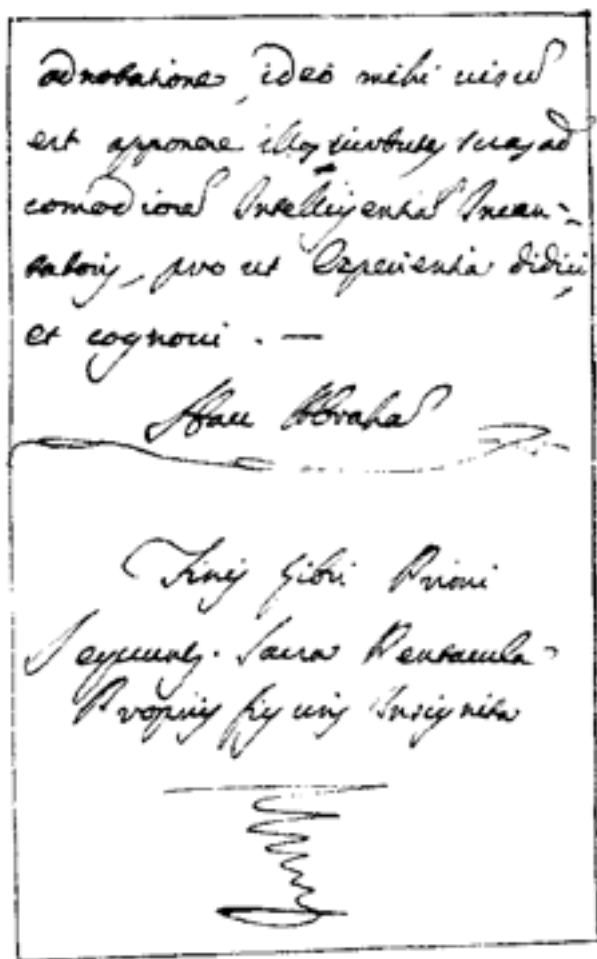 adnotatione, ideo mihi uisu
est apponere illoz uirtutes suas ad
comodiore Intelligentia Incan-
tatoris, pro ut Experientia didici
et cognoui. —
Abraha
Finis Libri Primi
Sequunt. Sacra Pentacula
Propriis figuris Insignita